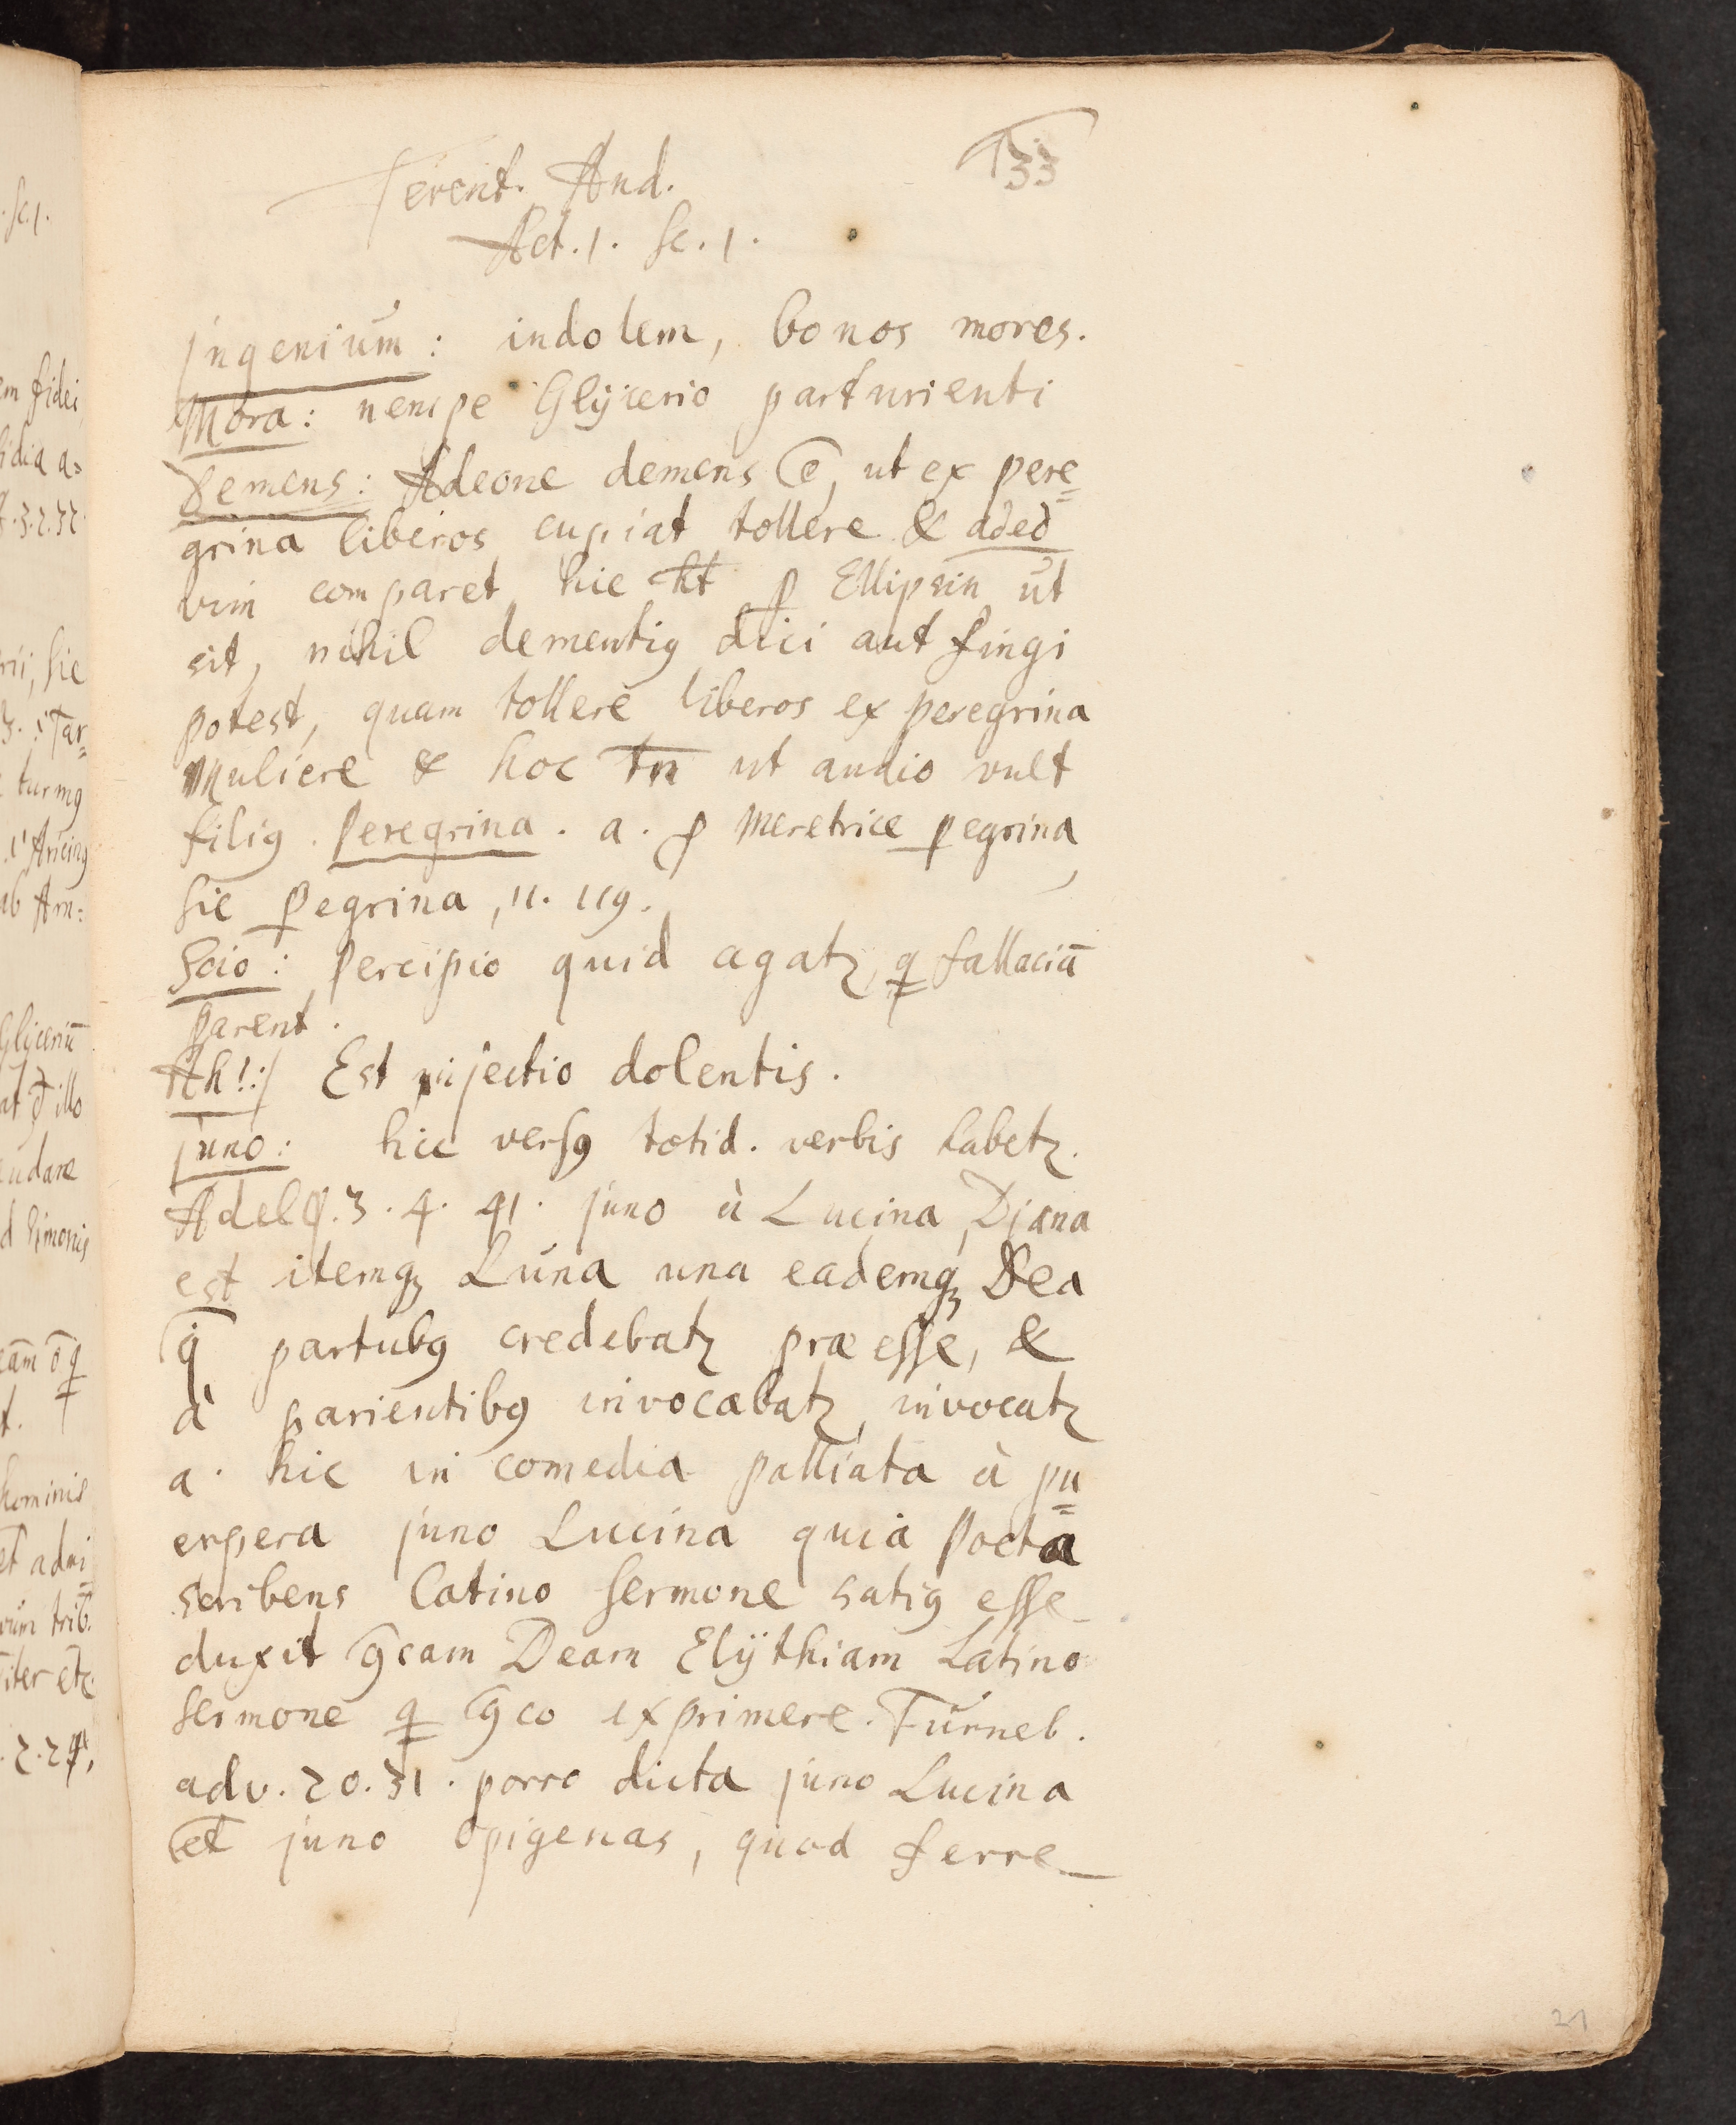 133
Terent. And.
Act. 1. Sc. 1.
Ingenium: indolem, bonos mores.
Mora: nempe Glycerio parturienti
Demens: Adeone demens ē, ut ex pere=
grina liberos cupiat tollere & adeo
vim comparet hic ht̄ ꝑ Ellipsin ut
sit, nihil dementiꝰ dici aut fingi
potest, quam tollere liberos ex peregrina
Muliere & hoc tn̄ ut audio vult
filiꝰ. Peregrina. a. ꝓ Meretrice ꝑegrina,
sic ꝑegrina, 11. 119.
Scio: percipio quid agatꝛ, ꝗ fallaciā
parent.
Ah!: Est injectio dolentis.
Juno: hic versꝰ totid. verbis habetꝛ.
Adelφ. 3. 4. 41. juno à Lucina, Diana
est itemqꝫ Luna una eademqꝫ Dea
q̄ partubꝰ credebatꝛ præesse, &
à parientibꝰ invocabatꝛ, invocatꝛ
a. hic in comedia palliata à pu=
erpera juno Lucina quia Poeta
scribens Latino sermone satiꝰ esse
duxit ḡcam Deam Elythiam Latino
sermone ꝗ ḡco exprimere. Turneb.
adv. 20. 31. porro dicta juno Lucina
et juno Opigenas, quod ferre
21